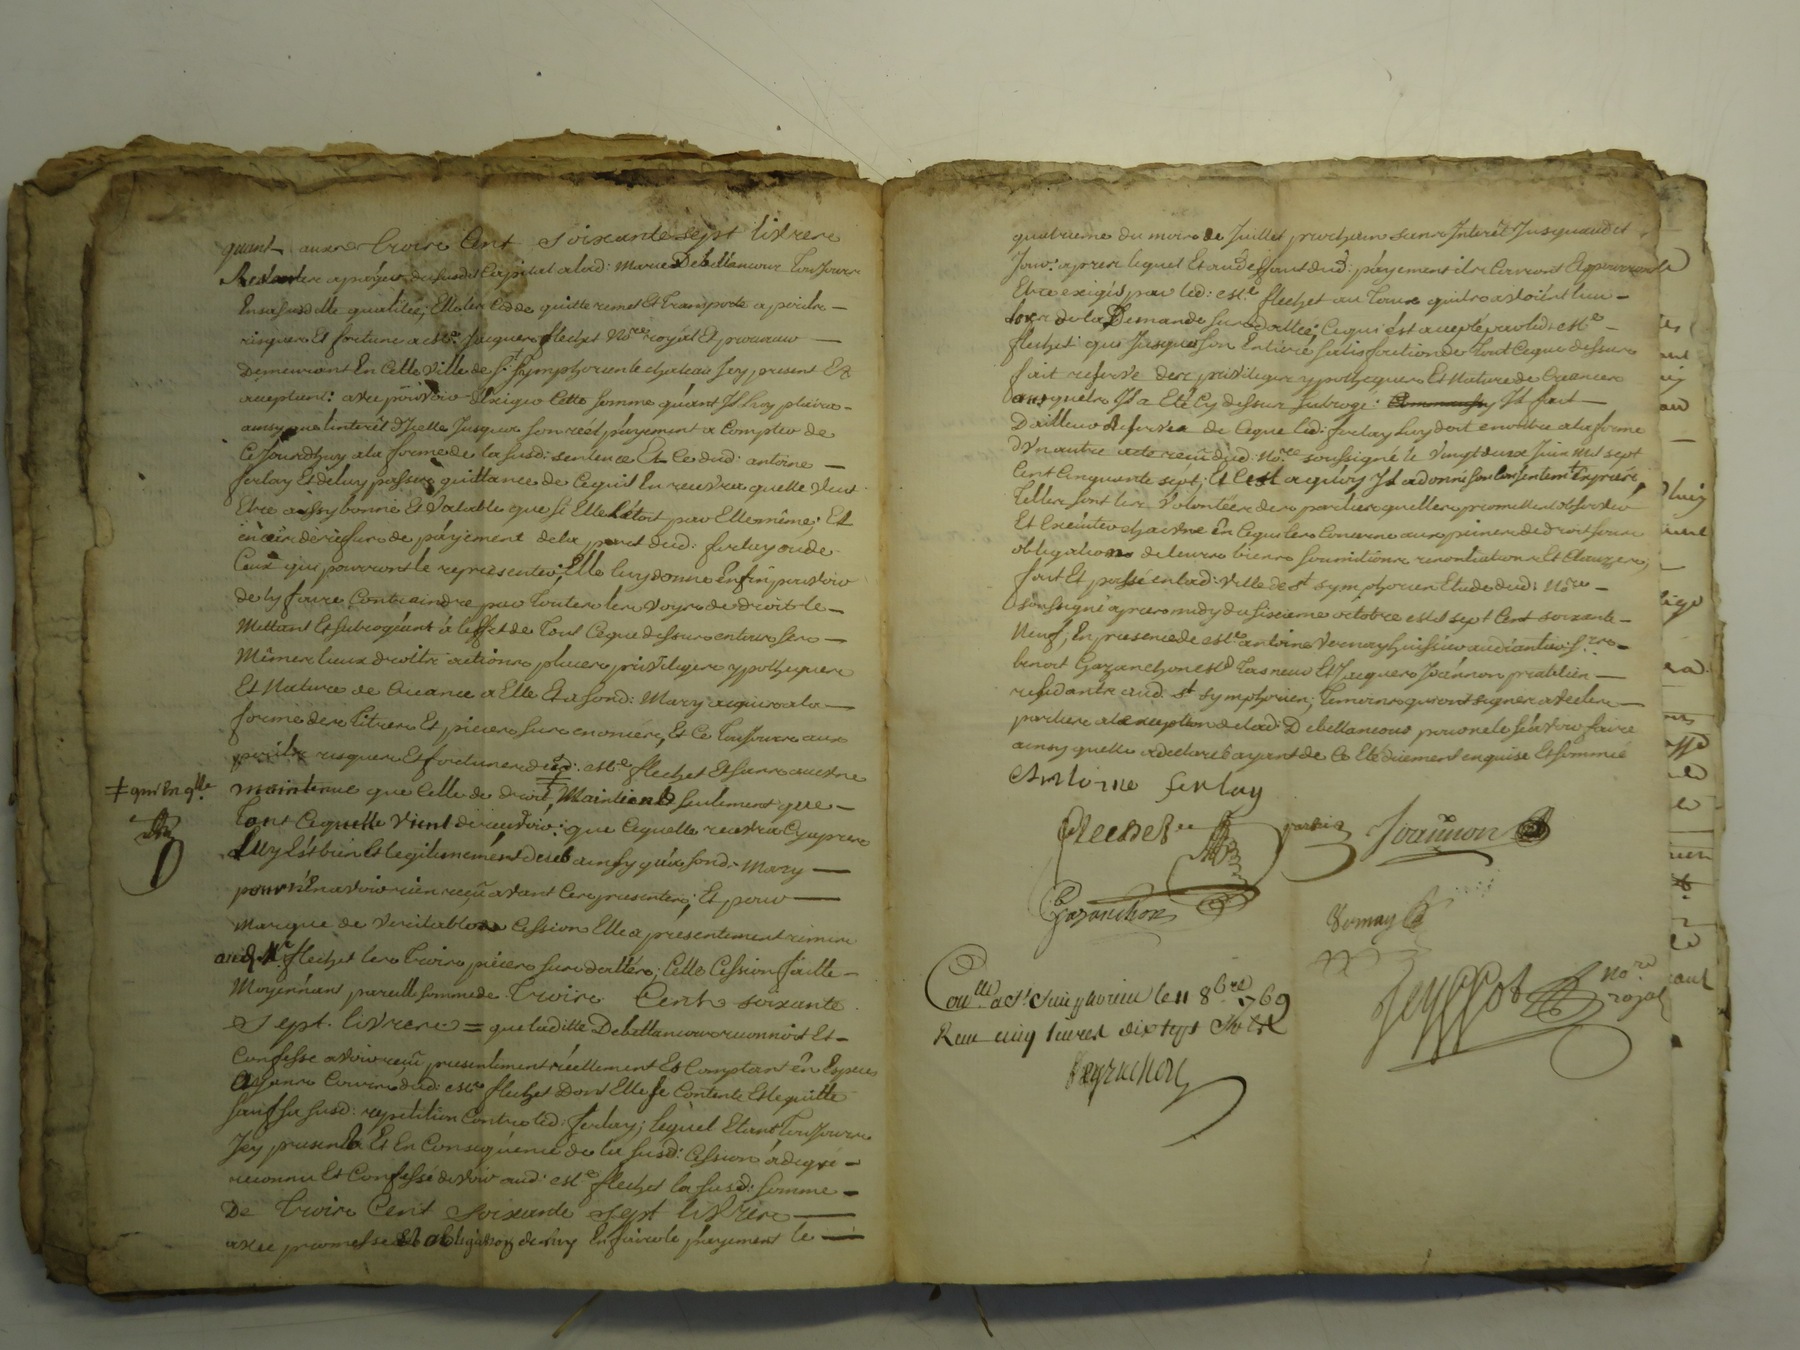 quant aux Trois Cent soixante sept livres
Restantes a payer du susdit Capital a lad: Marie Debellancour Toujours
En sa susditte qualitée; Elle les Cedde quitte remet Et Transporte a perils
risques Et fortune a Me Jacques flechet Nore royal Et procureur
Demeurant En Cette Ville de St Symphorien le chateau Jcy present Et
acceptant: avec pouvoir d'Exiger Cette Somme quant Jl luy plaira
ainsy que l'interêt d'Jcelle Jusqua son reel payement a Compter de
Ce Jourdhuy a la forme de la susd: sentence Et Ce dud: antoine
ferlay Et de luy passer quittance de Cequil En recevra quelle Veut
Etre aussy bonne Et Valable que si Elle l'étoit par Elle même; Et
en cas de refus de payement de la part dud: ferlay ou de
Ceux qui pourront le representer, Elle luy donne Enfin pouvoir
de ly faire Contraindre par Toutes les Voyes de droit le
Mettant Et subrogeant à l'effet de Tout Ceque dessus en tous ses
Mêmes lieux droits actions places privileges ypotheques
Et Nature de Creance a Elle Et a sond: Mary acquis a la
forme des Titres Et pieces sus enoncés, Et Ce Toujours aux
perils risques Et fortunes dud: Me flechet Et sans autre
‡ qui en qlle
maintenue que Celle de droit, Maintient seulement que
Tant Cequelle Vient de recevoir: que Cequelle recevra Cy apres
Luy Est bien Et legitimement deub ainsy qu'a sond: Mary
pour n'En avoir rien reçu avant Ces presentes; Et pour
Marque de Veritable Cession Elle a presentement remis
aud: Me flechet les Trois pieces sus dattés; Cette Cession faitte
Moyennant pareille somme de Trois Cent soixante
Sept livres = que laditte Debellancour reconnoit Et
Confesse avoir reçu presentement réellement Et Comptant en Especes
Ayans Cours dud: Me flechet Dont Elle se Contente Et le quitte
sauf sa susd: repetition Contre led: ferlay; lequel Etant Toujours
Jcy present Et En Consequence de la susd: Cession à de gré
reconnu Et Confessé devoir aud: Me flechet la susd: somme
De Trois Cent Soixante Sept livres
avec promesse Et obligation de luy En faire le payement le
quatrieme du mois de Juillet prochain sans Interêt Jusquaudit
Jour: apres lequel Et au deffaut dud: payement ils Courront
Etre exigés par led: Me flechet au Taux quils avoient lieu
lors de la Demande sus dattée; Cequi est accepté par led: Me
flechet qui Jusqua son Entiere satisfaction de Tout Ceque dessus
fait reserve des privileges ypotheques Et Nature de Creances
auxquels Jl a Eté Cy dessus subrogé: Jl fait
D'ailleurs Reserve de Ceque led: ferlay luy doit en outre a la forme
d'Vn autre acte reçu dud: Nore soussigné le Vingt deux Juin Mil sept
Cent Cinquante sept; Et Cest a quoy Jl a donné son Consentemt Exprés
Telles sont les Volontées des parties quelles promettent observer
Et Executer chacune En Cequi les Concerne aux peines de droit sous
obligations de leurs biens soumitions renontiations Et Clauzes;
fait Et passé en lad: Ville de St symphorien Etude dud: Nore
soussigné apres midy du sixieme octobre Mil sept Cent soixante
Neuf; En presence de Me antoine Vernay huissier audiantier Sr
benoit Gazanchon Md Tanneur Et Jacques Joannon praticien
residants aud: St symphorien; Temoins qui ont signer avec les
parties a l'exception de lad: Debellancour pour ne le sçavoir faire
ainsy quelle a declaré ayant de Ce Eté düement enquise Et sommée
Antoine ferlay
flechet
Joannon
Gazanchon
Vernay
Conllé a St Simphorien le 11 8bre 1769
Reçu cinq livres dix sept
Nore
royal